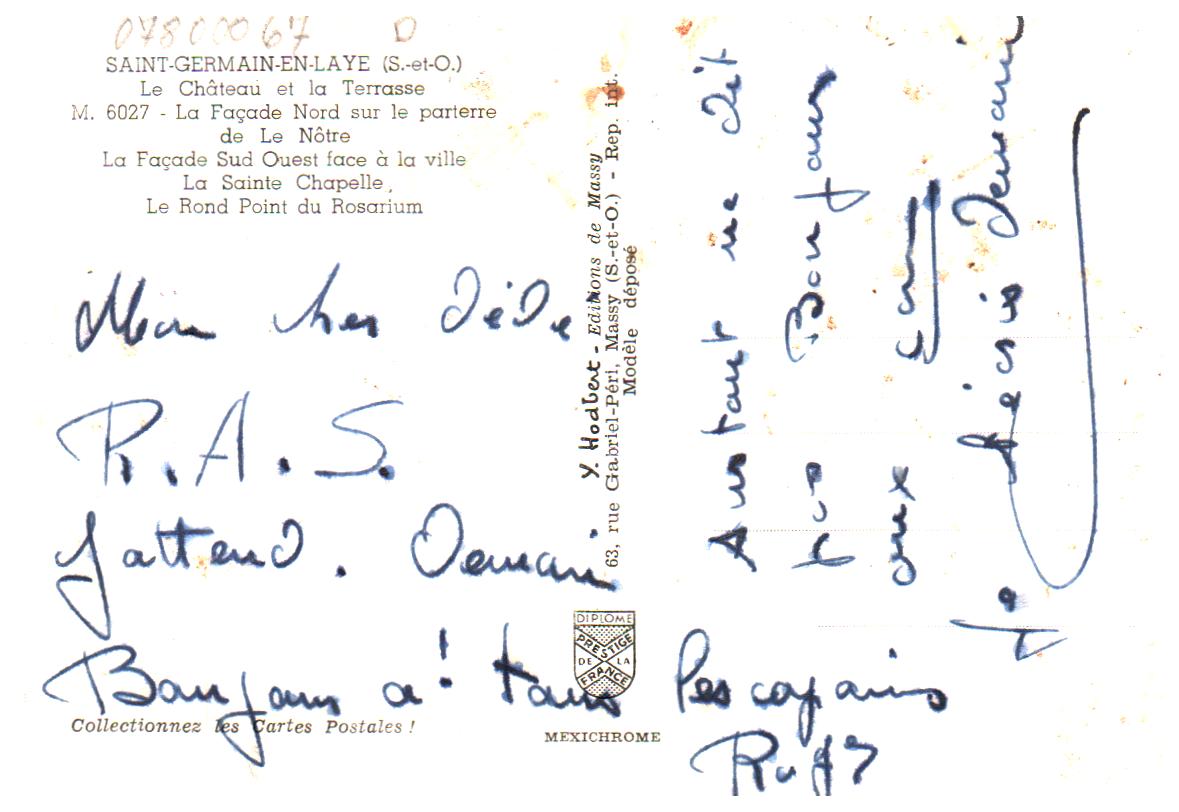 07800067 D
SAINT-GERMAIN-EN-LAYE (S.-et-O.)
Le Château et la Terrasse
M. 6027 - La Façade Nord sur le parterre
de Le Nôtre
La Façade Sud Ouest face à la ville
La Sainte Chapelle,
Le Rond Point du Rosarium
Mon cher Dédé
R.A.S.
J'attend. Demain
Bonjour a! tous les copains
Collectionnez les Cartes Postales !
Y. Hodbert - Editions de Massy
63, rue Gabriel-Péri, Massy (S.-et-O.) - Rep. int.
Modèle déposé
DIPLOME
PRESTIGE
DE LA
FRANCE
MEXICHROME
dit
Bonjour
aux
Je Demain